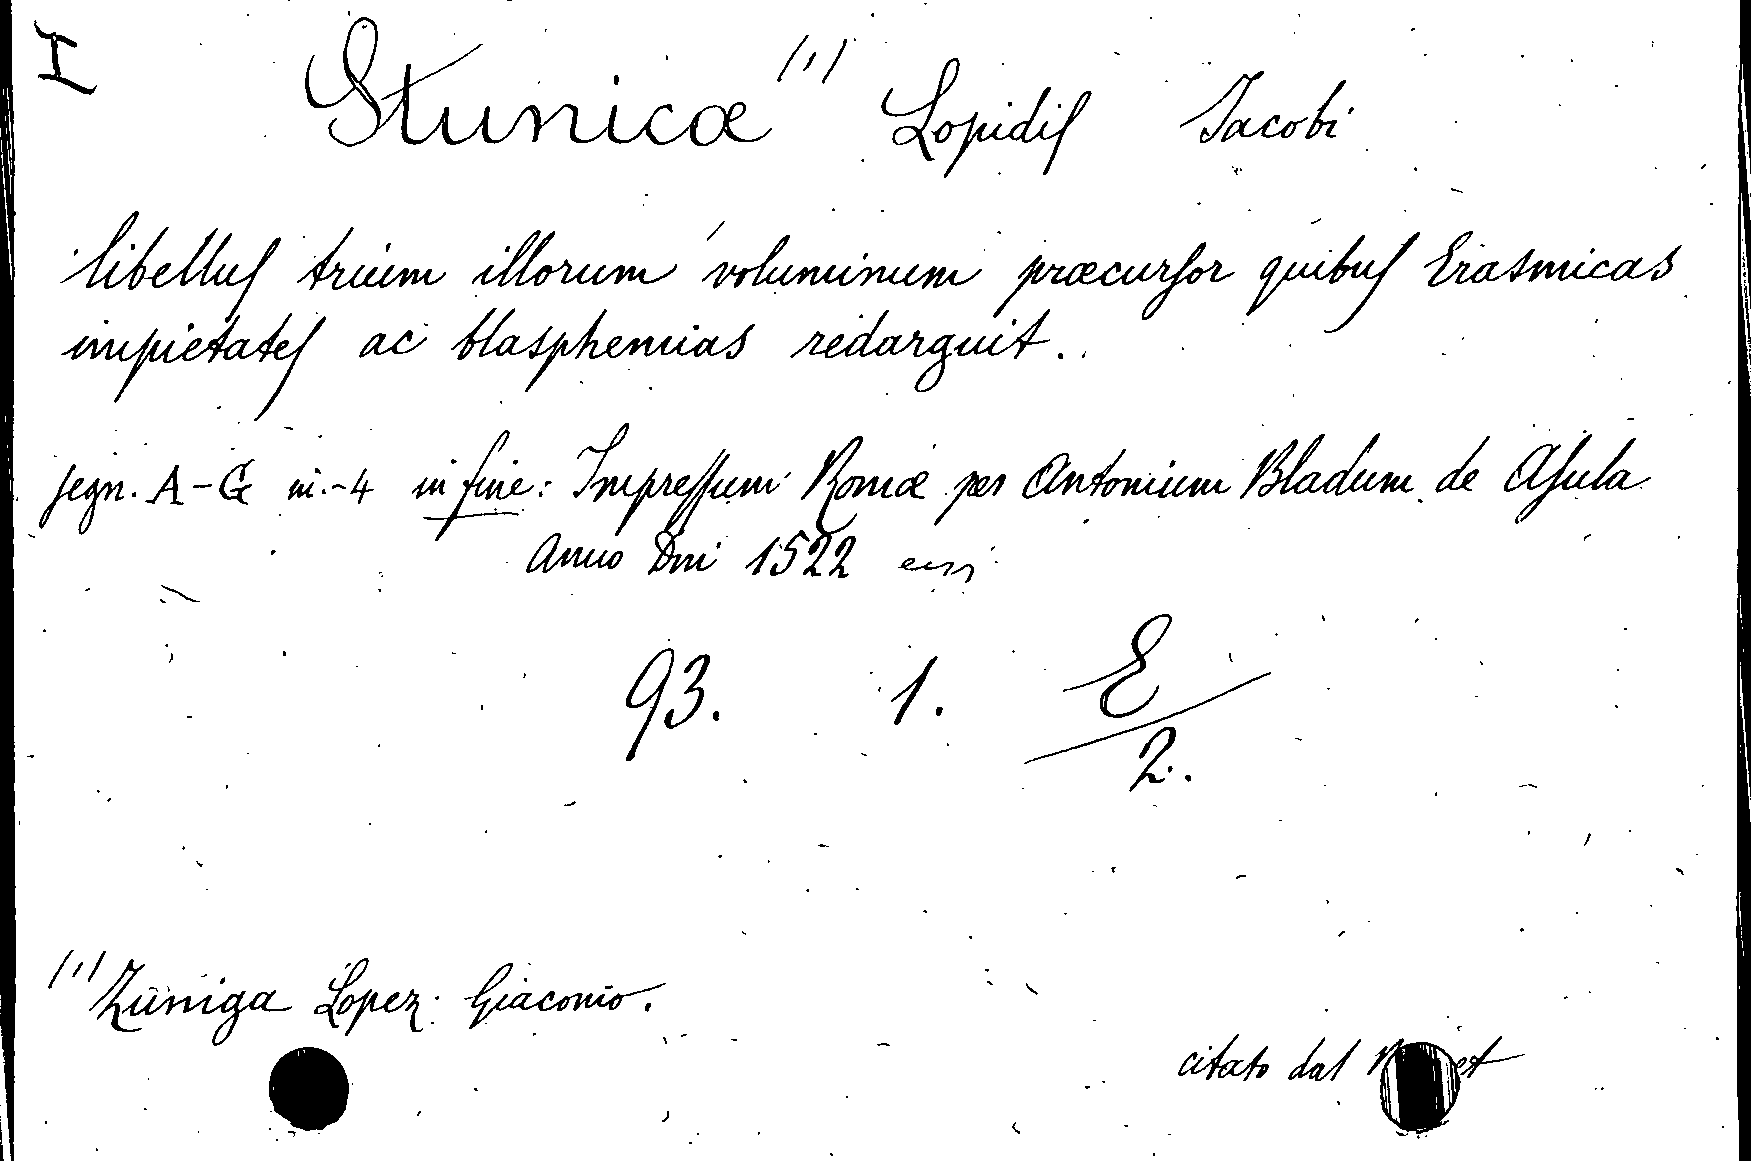 I
Stunicæ (1) Lopidiſ Jacobi
libelluſ trium illorum voluminum præcurſor quibuſ Erasmicas
impietateſ ac blasphemias redarguit.
segn. A-G in-4 in fine: Impreſſum Romæ per Antonium Bladum de Aſula
Anno Dni 1522
93. 1. E
2.
(1) Zuniga Lopez Giacomo.
citato dal